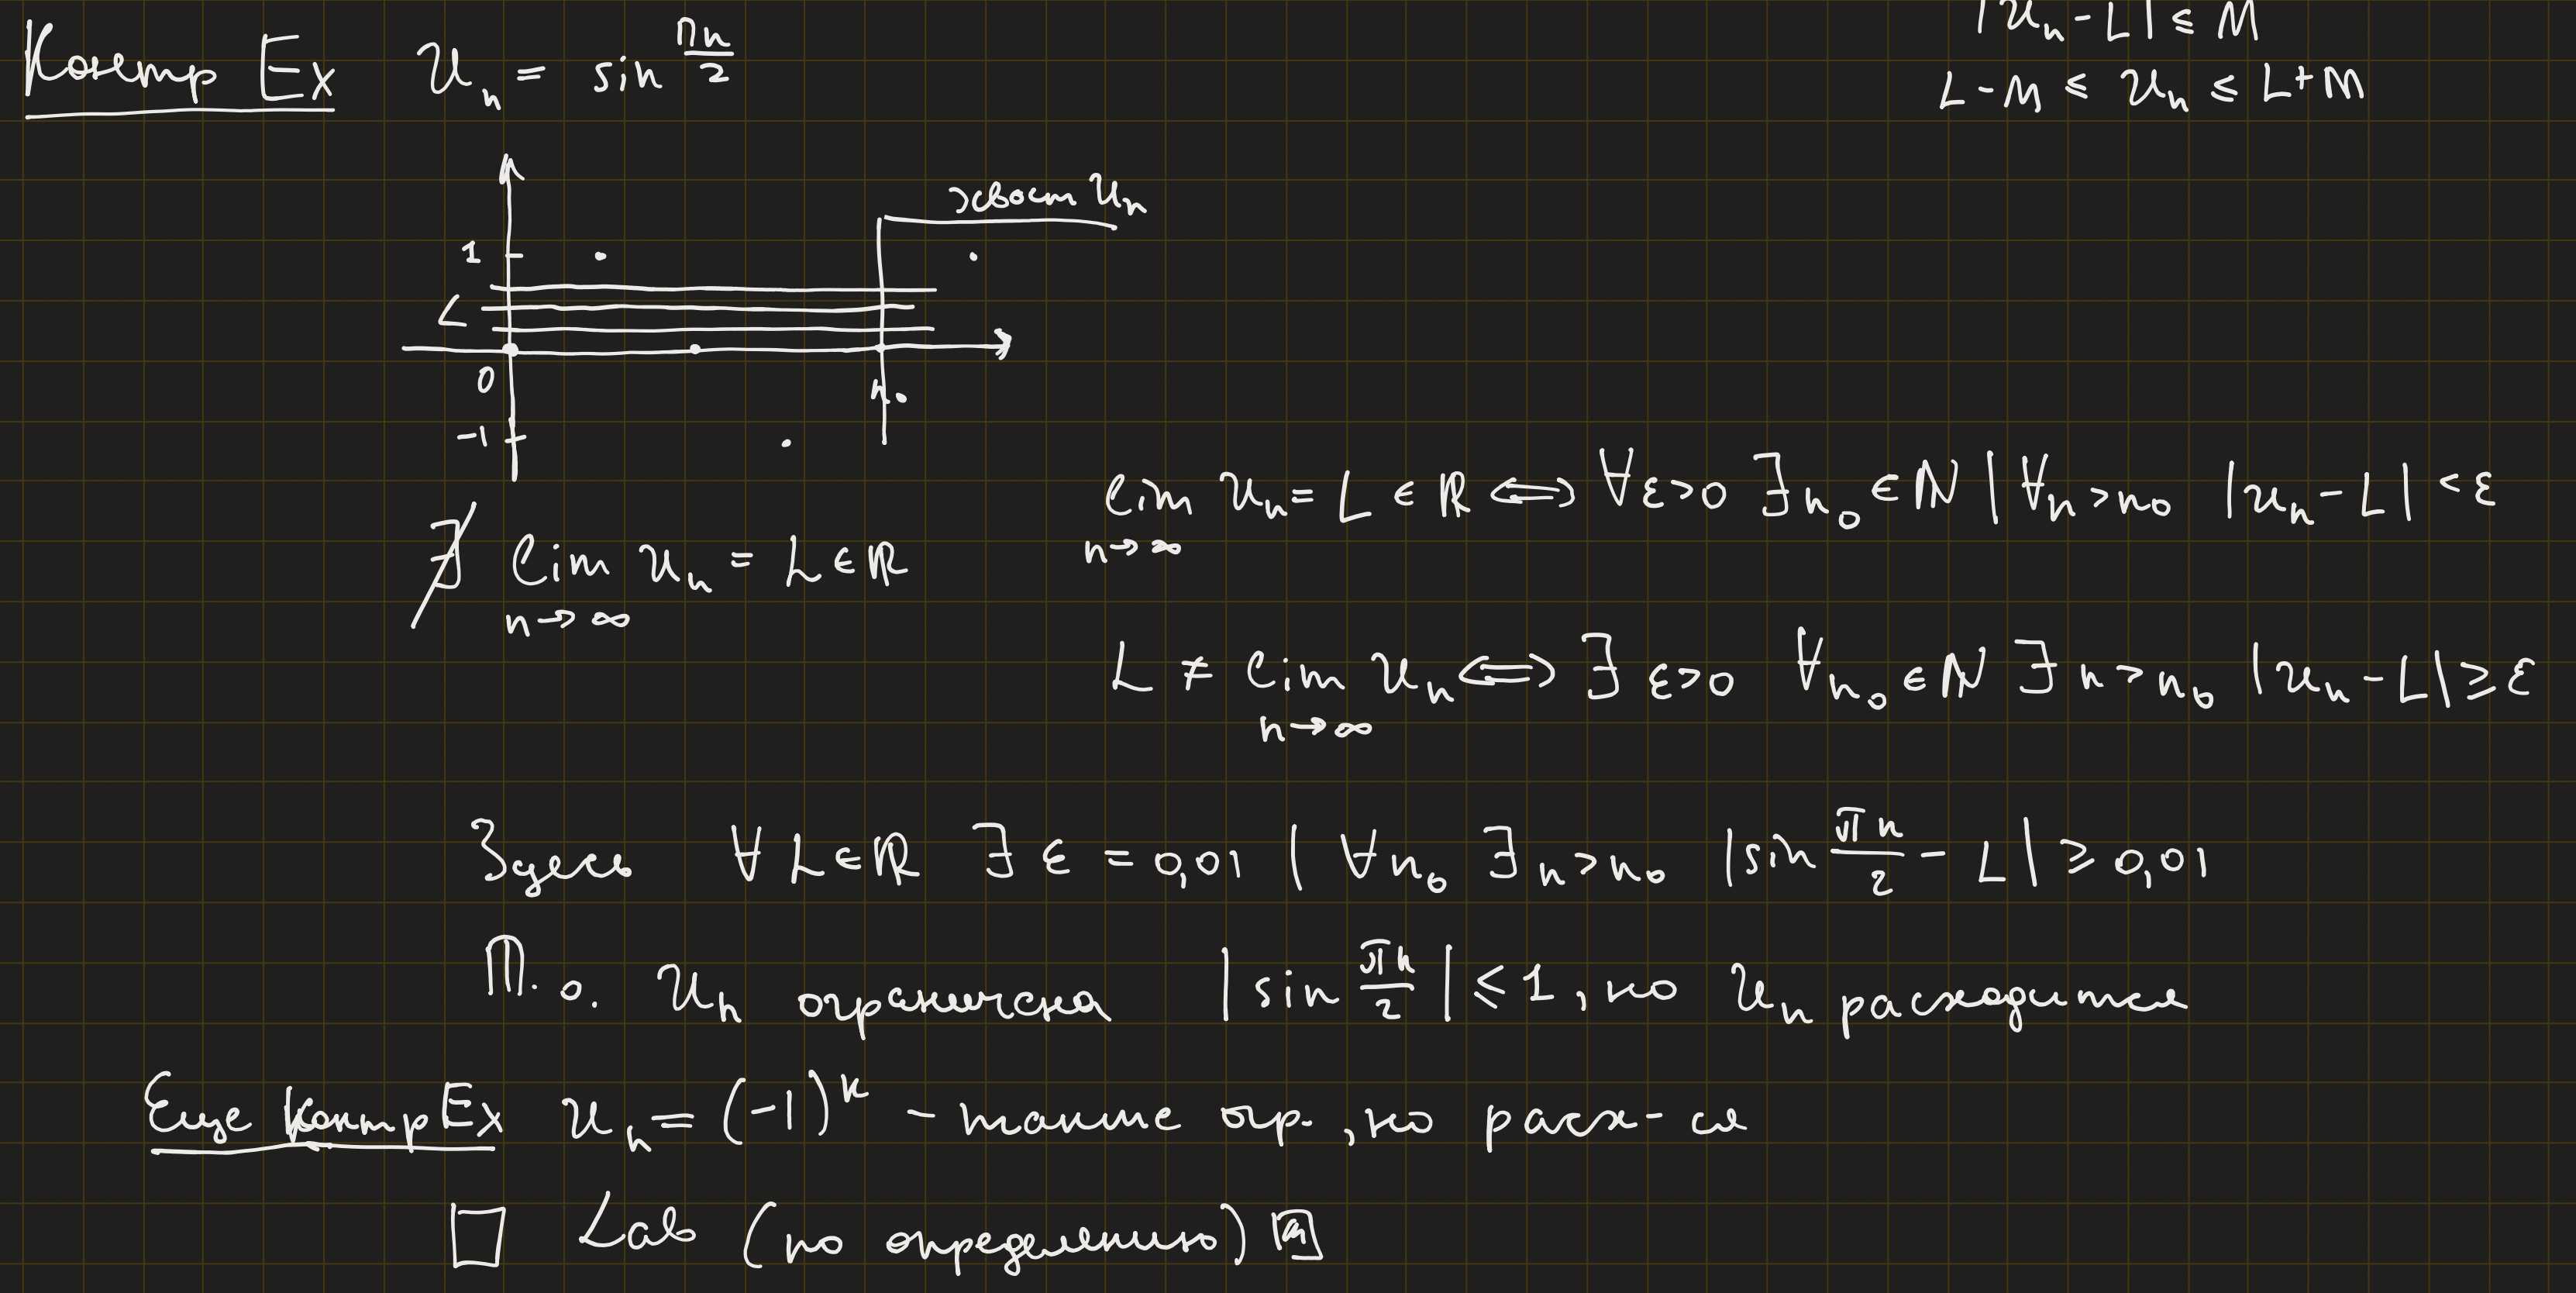 |u_n - L| ≤ M
Контр Ex u_n = sin πn/2
L - M ≤ u_n ≤ L + M
хвост u_n
1
L
0
n_0
-1
lim_{n→∞} u_n = L ∈ ℝ ⟺ ∀ε>0 ∃n_0 ∈ ℕ | ∀n>n_0 |u_n - L| < ε
∄ lim_{n→∞} u_n = L ∈ ℝ
L ≠ lim_{n→∞} u_n ⟺ ∃ ε>0 ∀n_0 ∈ ℕ ∃ n>n_0 |u_n - L| ≥ ε
Здесь ∀ L ∈ ℝ ∃ ε = 0,01 | ∀n_0 ∃n>n_0 |sin πn/2 - L| ≥ 0,01
Т.о. u_n ограничена |sin πn/2| ≤ 1, но u_n расходится
Еще контр Ex u_n = (-1)^n - также огр., но расх-ся
□ Lab (по определению)